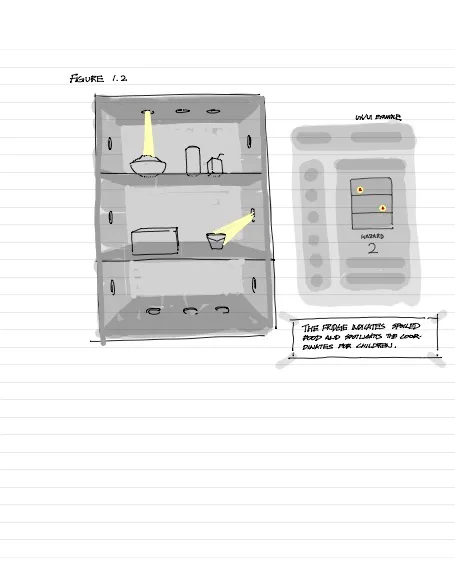 FIGURE 1.2
UX/UI EXAMPLE
HAZARD
2
THE FRIDGE INDICATES SPOILED
FOOD AND SPOTLIGHTS THE COOR-
DINATES FOR CHILDREN.